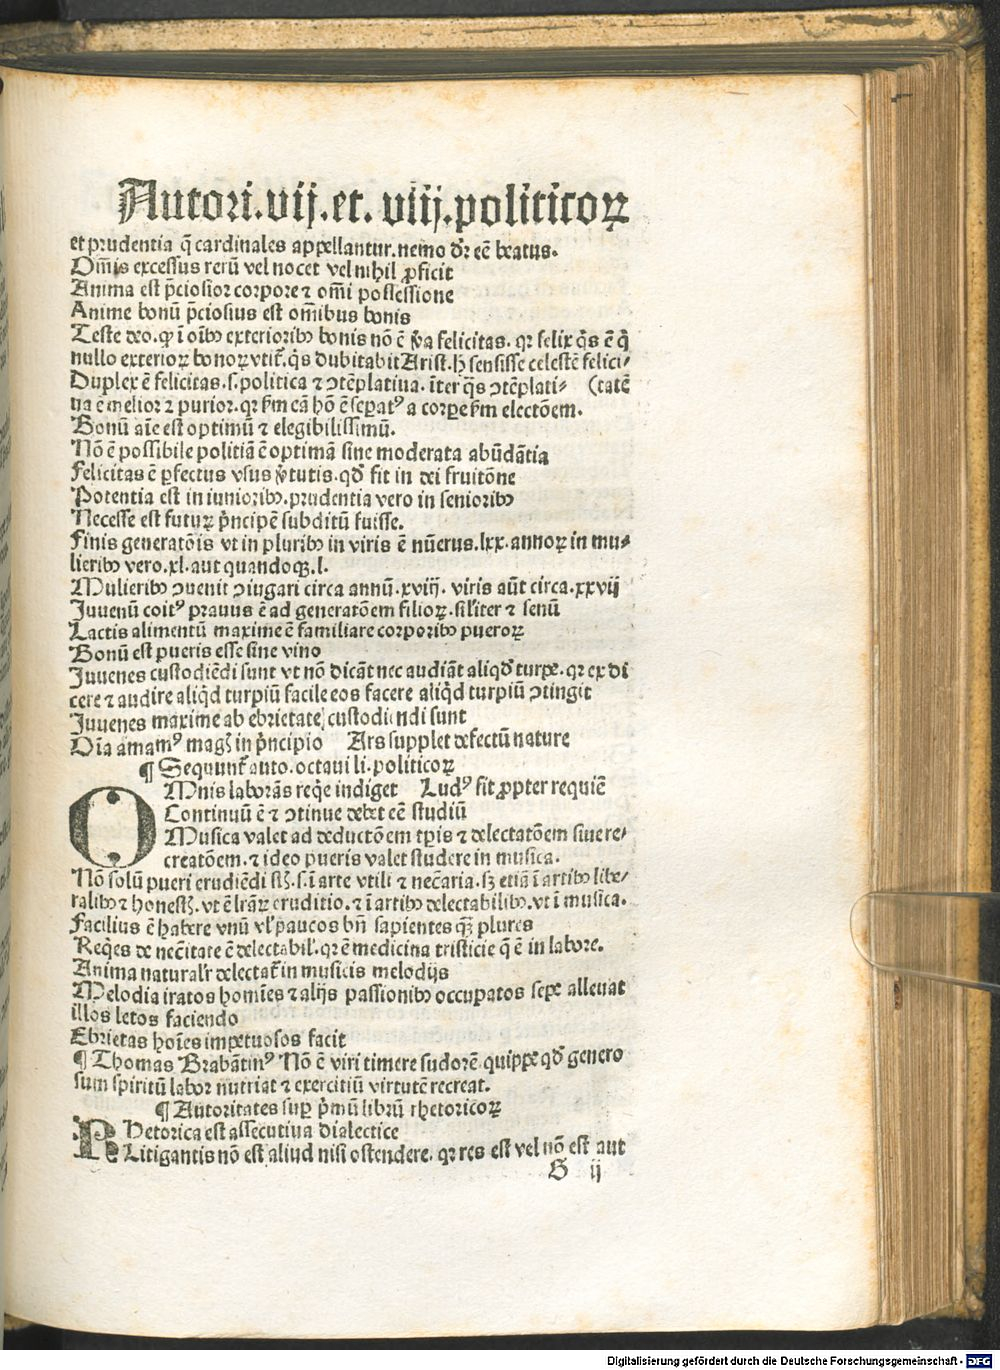 Autori.vij.et.viij.politicoꝝ
et prudentia q̄ cardinales appellantur.nemo dr̄ eē beatus.
Om̄is excessus rerū vel nocet vel nihil ꝓficit
Anima est p̄ciosior corpore ⁊ om̄i possessione
Anime bonū p̄ciosius est om̄ibus bonis
Teste deo.ꝙ ī oībꝰ exterioribꝰ bonis nō ē ꝟa felicitas. qꝛ felix q̇s ē q̇
nullo exterioꝝ bonoꝝ vtit̄. q̇s dubitabit Arist. hͦ sensisse celestē felici⸗
Duplex ē felicitas.s.politica ⁊ ꝯtēplatiua. īter q̄s ꝯtēplati⸗ (tatē
ua ē melior ⁊ purior. qꝛ km̄ eā hō ē sepatꝰ a corpe km̄ electōem.
Bonū aīe est optimū ⁊ elegibilissimū.
Nō ē possibile politiā ē optimā sine moderata abūdātia
Felicitas ē ꝑfectus vsus ꝟtutis.qd̄ fit in dei fruitōne
Potentia est in iunioribꝰ.prudentia vero in senioribꝰ
Necesse est futuꝝ p̄ncipē subditū fuisse.
Finis generatōis vt in pluribꝰ in viris ē nūerus.lxx.annoꝝ in mu⸗
lieribꝰ vero.xl.aut quandoqꝫ.l.
Mulieribꝰ ꝯuenit ꝯiugari circa annū.xviij. viris aūt circa.xxvij
Juvenū coitꝰ prauus ē ad generatōem filioꝝ.sil̄iter ⁊ senū
Lactis alimentū maxime ē familiare corporibꝰ pueroꝝ
Bonū est pueris esse sine vino
Juvenes custodiēdi sunt vt nō dicāt nec audiāt aliqd̄ turpe. qꝛ ex di
cere ⁊ audire aliq̇d turpiū facile eos facere aliq̇d turpiū ꝯtingit
Juvenes maxime ab ebrietate custodiendi sunt
Oīa amamꝰ magꝭ in p̄ncipio Ars supplet defectū nature
¶ Sequunt̄ auto.octaui li.politicoꝝ
OMnis laborās req̇e indiget Ludꝰ fit ꝓpter requiē
Continuū ē ⁊ ꝯtinue debet eē studiū
Musica valet ad deductōem tp̄is ⁊ delectatōem siue re⸗
creatōem.⁊ ideo pueris valet studere in musica.
Nō solū pueri erudiēdi st̄.s.ī arte vtili ⁊ nec̄aria.sꝫ etiā ī artibꝰ libe⸗
ralibꝰ ⁊ honestꝭ.vt ē lr̄aꝝ eruditio.⁊ ī artibꝰ delectabilibꝰ.vt ī musica.
Facilius ē habere vnū vl̄ paucos bn̄ sapientes qꝫ plures
Req̇es de nec̄itate ē delectabil̄.qꝛ ē medicina tristicie q̄ ē in labore.
Anima natural̄r delectat̄ in musicis melodijs
Melodia iratos homīes ⁊ alijs passionibꝰ occupatos sepe alleuat
illos letos faciendo
Ebrietas hoīes impetuosos facit
¶ Thomas Brabātinꝰ Nō ē viri timere sudorē.quippe qd̄ genero
sum spiritū labor nutriat ⁊ exercitiū virtutē recreat.
¶ Autoritates suꝑ p̄mū librū rhetoricoꝝ
RHetorica est assecutiua dialectice
Litigantis nō est aliud nisi ostendere. qꝛ res est vel nō est aut
G ij
Digitalisierung gefördert durch die Deutsche Forschungsgemeinschaft - DFG